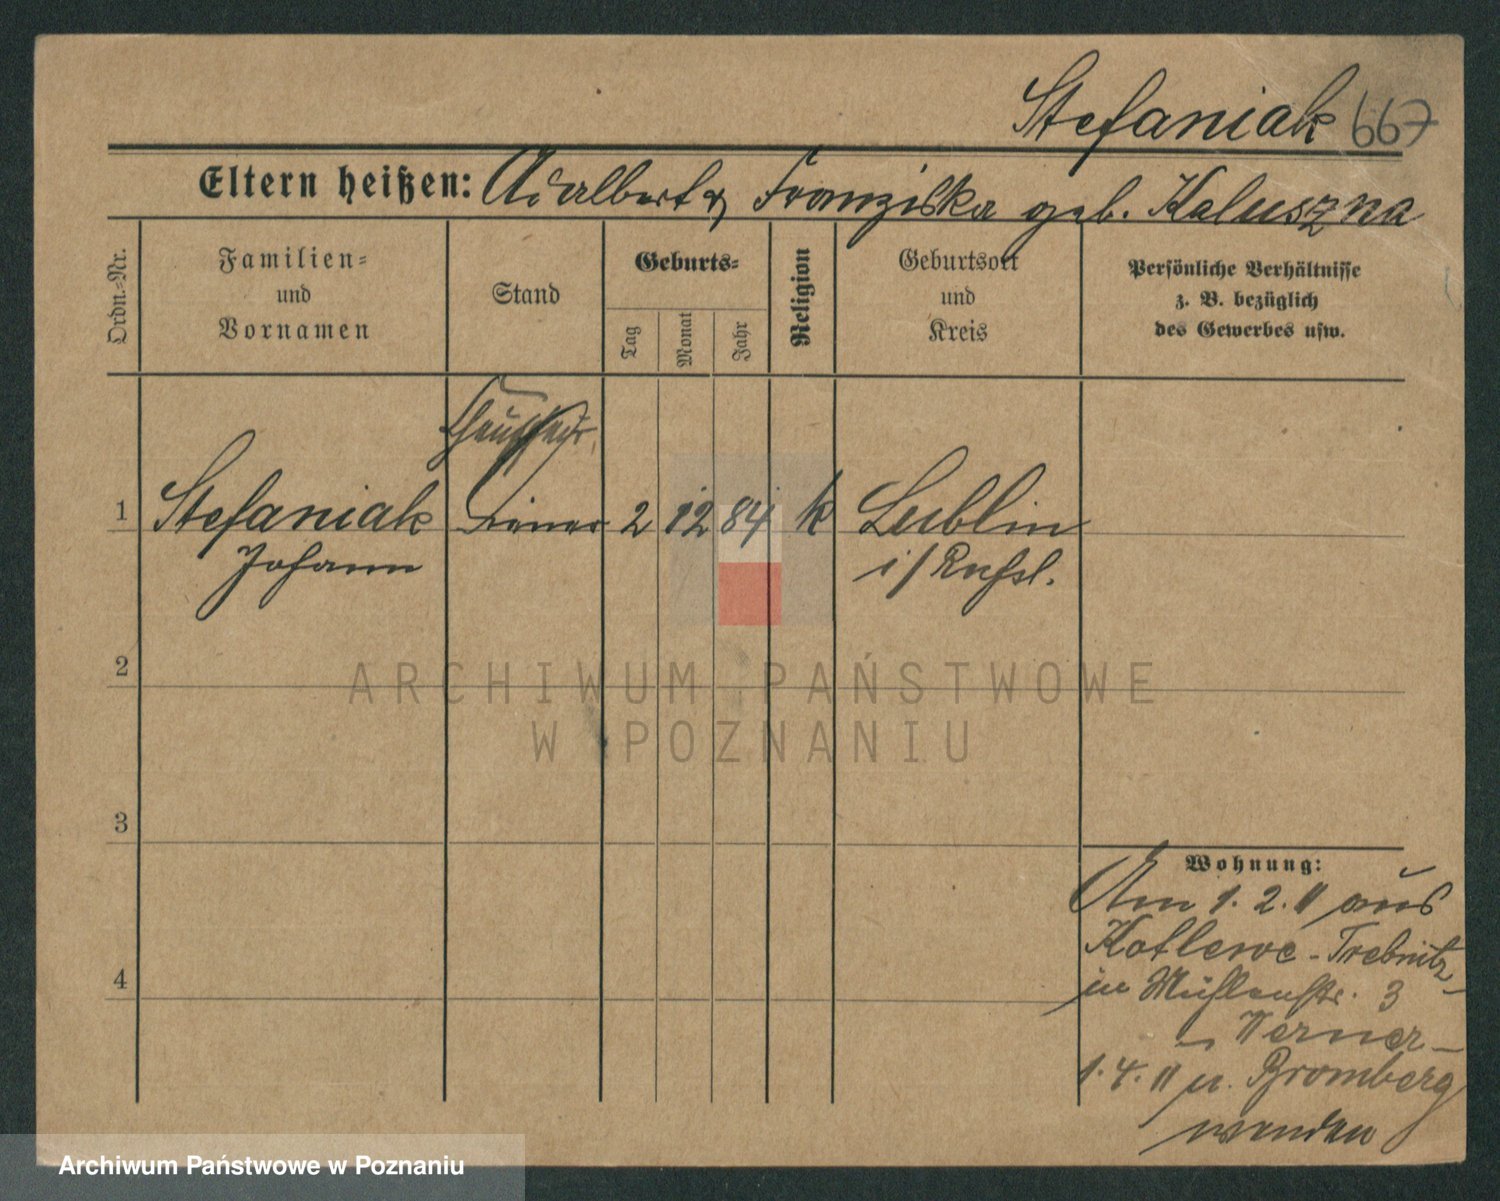 Stefaniak 667
Eltern heißen: Adalbert & Franziska geb. Kaluszna
Ordn.-Nr.
Familien-
und
Vornamen
Stand
Geburts-
Tag
Monat
Jahr
Religion
Geburtsort
und
Kreis
Persönliche Verhältnisse
z. B. bezüglich
des Gewerbes usw.
1 Stefaniak Diener 2 12 84 k Lublin
Johann i/Russl.
2
ARCHIWUM PAŃSTWOWE
W POZNANIU
3
Wohnung:
Am 1. 2. 11 aus
Kotlewe-Trebnitz-
in Mühlenstr. 3
Werner-
1. 4. 11 n. Bromberg
4
Archiwum Państwowe w Poznaniu